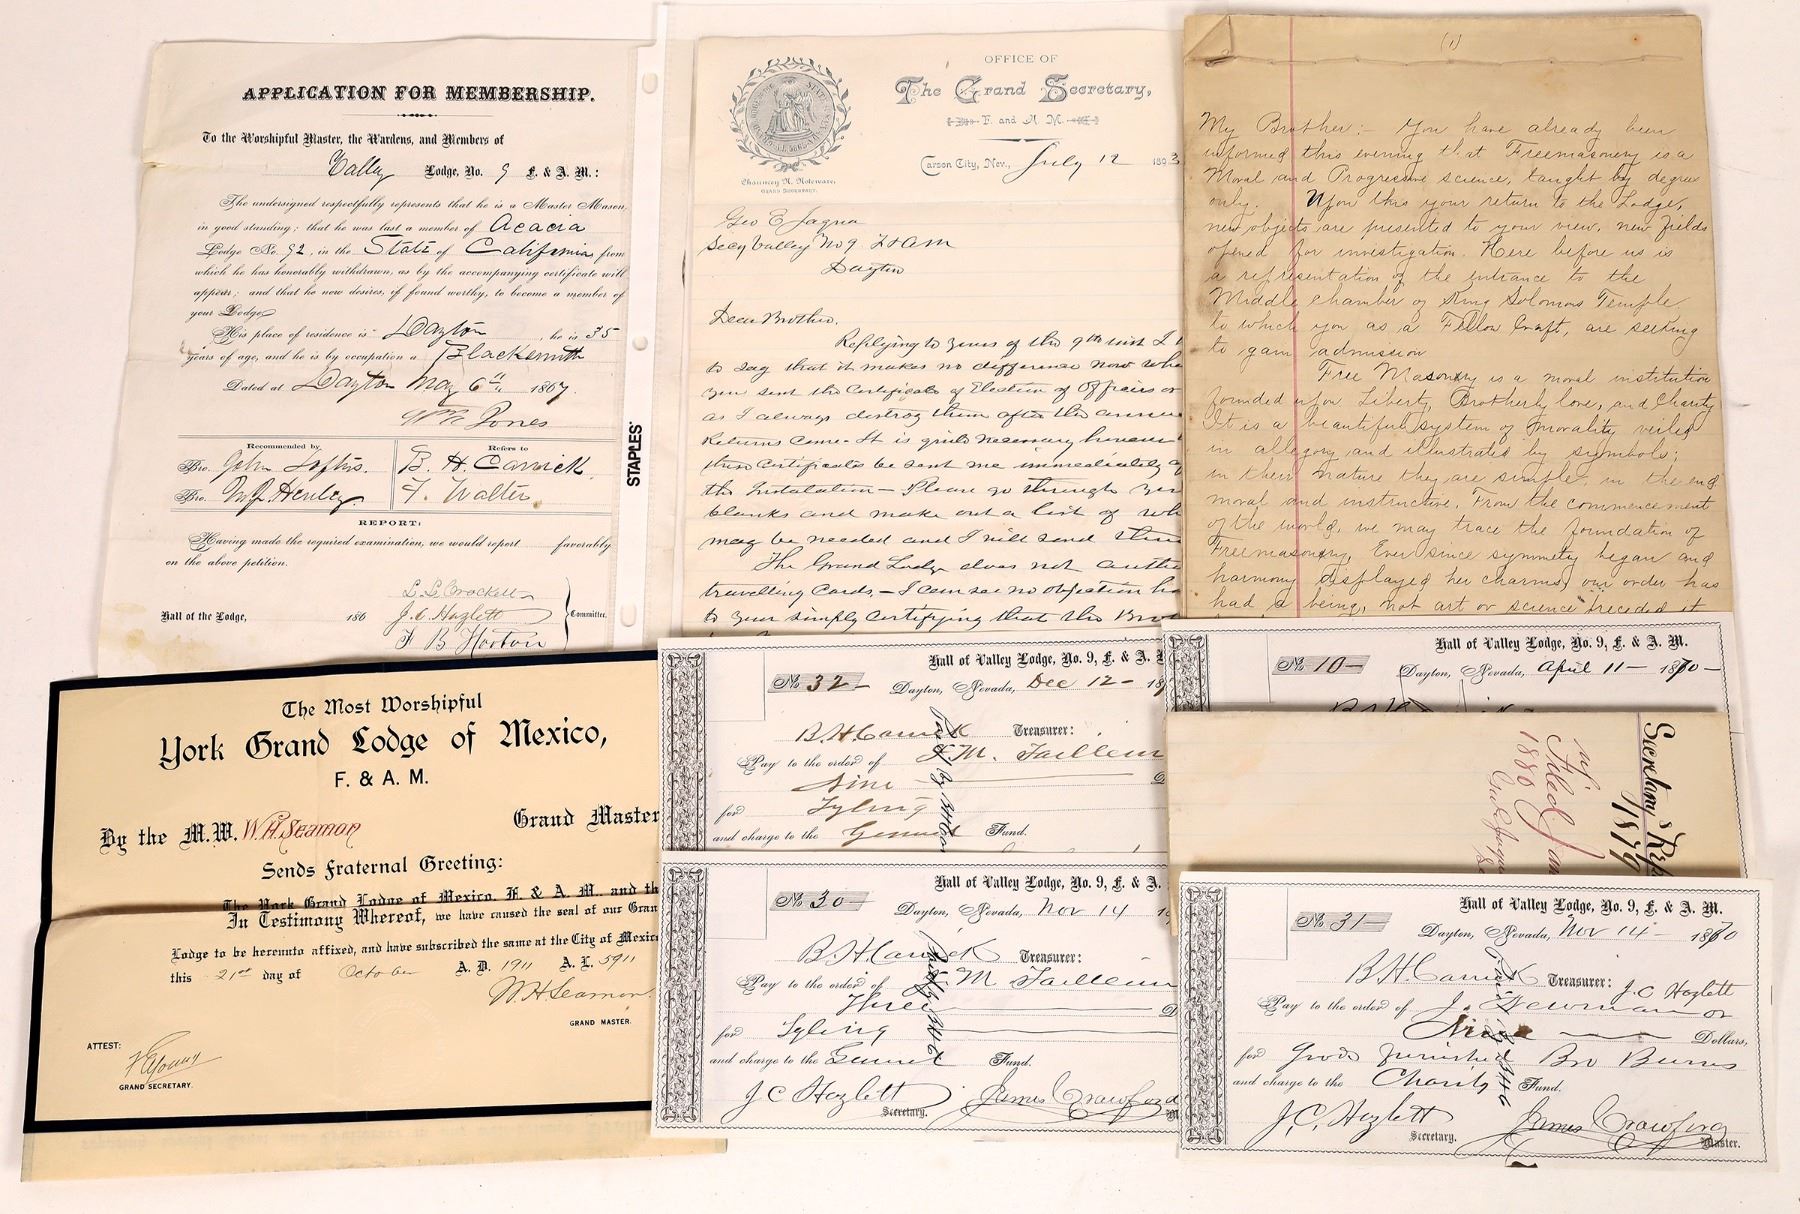 APPLICATION FOR MEMBERSHIP.
To the Worshipful Master, the Wardens, and Members of
Valley Lodge, No. 9 F. & A. M.:
The undersigned respectfully represents that he is a Master Mason,
in good standing; that he was last a member of Acacia
Lodge No. 92, in the State of California from
which he has honorably withdrawn, as by the accompanying certificate will
appear; and that he now desires, if found worthy, to become a member of
your Lodge
His place of residence is Dayton, he is 35
years of age, and he is by occupation a Blacksmith
Dated at Dayton May 6th 1867.
Wm R Jones
Recommended by
Refers to
Bro. John Loftus.
B. H. Carrick.
Bro. Henley
F. Walter
REPORT:
Having made the required examination, we would report favorably
on the above petition.
L. L. Crockett
Hall of the Lodge, 186
J. C. Hazlett
Committee.
F B Horton
STAPLES
OFFICE OF
The Grand Secretary,
F. and A. M.
Carson City, Nev., July 12 1893
Chauncey N. Noteware,
GRAND SECRETARY.
Geo E Jaqua
Secy Valley No 9 F & A M
Dayton
Dear Brother,
Replying to yours of the 9th inst I
to say that it makes no difference now
you sent the Certificate of Election of Officers or
as I always destroy them after the
Returns come - It is quite necessary
these Certificates be sent me immediately
the Installation - Please go through
blanks and make out a list of
may be needed and I will send
The Grand Lodge does not
travelling Cards, - I can see no objection
to your simply certifying that the Bro
(1)
My Brother:- You have already been
informed this evening that Freemasonery is a
Moral and Progressive science, taught by degrees
only. Upon this your return to the Lodge,
new objects are presented to your view, new fields
opened for investigation. Here before us is
a representation of the entrance to the
Middle Chamber of King Solomons Temple
to which you as a Fellow Craft, are seeking
to gain admission
Free Masonry is a moral institution
founded upon Liberty, Brotherly love, and Charity
It is a beautiful system of morality veiled
in allegory and illustrated by symbols;
in their nature they are simple, in the end
moral and instructive. From the commencement
of the world, we may trace the foundation of
Freemasonry, Ever since symmetry began and
harmony displayed her charms, our order has
had a being, not art or science preceded it
The Most Worshipful
York Grand Lodge of Mexico,
F. & A. M.
By the M. W. W. H. Seamon Grand Master
Sends Fraternal Greeting:
The York Grand Lodge of Mexico, F. & A. M., and th
In Testimony Whereof, we have caused the seal of our Gran
Lodge to be hereunto affixed, and have subscribed the same at the City of Mexico
this 21st day of October A. D. 1911 A. L. 5911
W H Seamon.
GRAND MASTER.
ATTEST:
GRAND SECRETARY.
Hall of Valley Lodge, No. 9, F. & A. M
No 32 Dayton, Nevada, Dec 12 - 18
B. H. Carrick Treasurer:
Pay to the order of
Nine
for Tyling
and charge to the General Fund.
Hall of Valley Lodge, No. 9, F. & A. M.
No 10 Dayton, Nevada, April 11 - 1870
Secretary's
1879
Filed Jan
1880
Hall of Valley Lodge, No. 9, F. & A.
No 30 Dayton, Nevada, Nov 14
B. H. Carrick Treasurer:
Pay to the order of
Three
for Tyling
and charge to the General Fund.
J C Hazlett Secretary.
James Crawford
Hall of Valley Lodge, No. 9, F. & A. M.
No 31 Dayton, Nevada, Nov 14 - 1870
B. H. Carrick Treasurer: J. C Hazlett
Pay to the order of J. Newman or
Nine Dollars,
for Goods furnished Bro Burns
and charge to the Charity Fund.
J. C. Hazlett Secretary.
James Crawford Master.